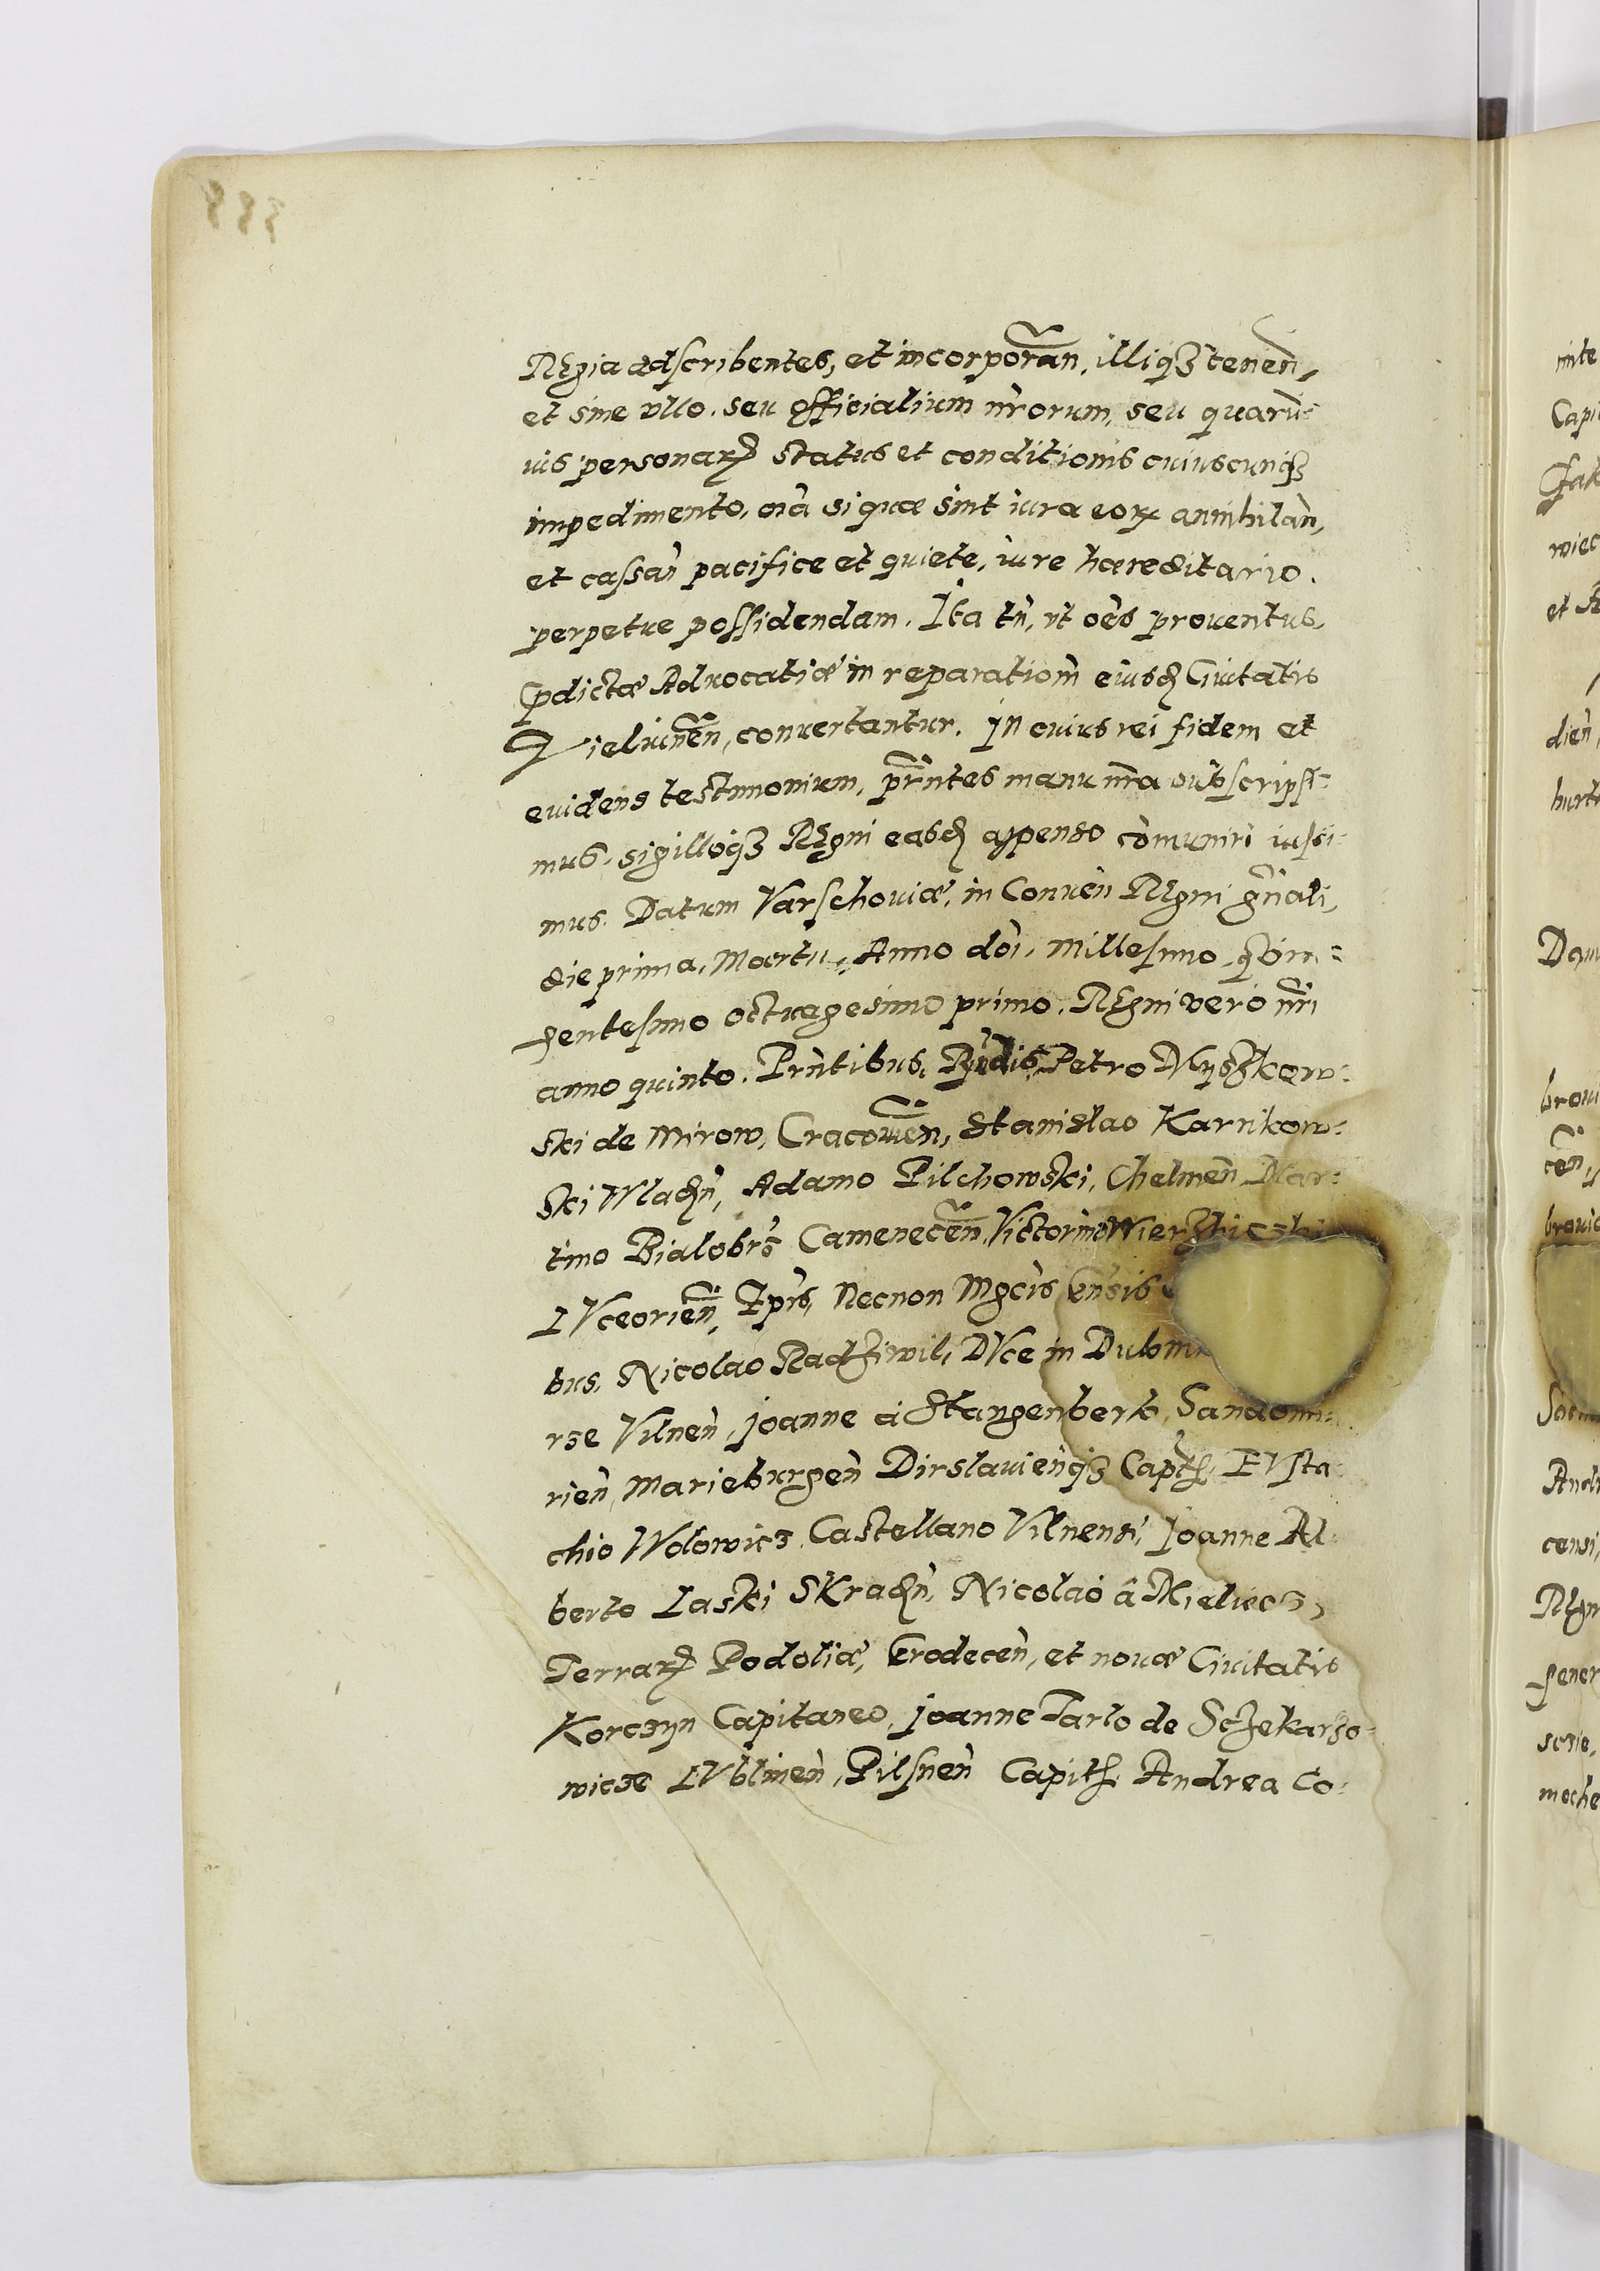 Regia adscribentes, et incorporañ, illiqȝ tenen̄,
et sine vllo, seu officialium nr̄orum, seu quarū=
uis personarꝝ status et conditionis cuiuscunqȝ
impedimento, oīa si quæ sint iura eorꝝ annihilañ,
et cassañ pacifice et quiete, iure hæreditario.
perpetue possidendam. Ita tñ, vt oēs prouentus,
p̄dictæ Aduocatiæ in reparationē eiusdꝫ Ciuitatis
Vieluneñ, conuertantur. In cuius rei fidem et
euidens testimonium, pr̄ntes manu nr̄a subscripsi=
mus, sigilloqȝ Regni easdꝫ appenso com̄uniri iussi=
mus. Datum Varschouiæ, in Conueñ Regni gñali,
die prima, Martii, Anno doī, millesimo, quin=
gentesimo octuagesimo primo. Regni vero nr̄i
anno quinto. Prñtibus, Rñdis, Petro Myszkow=
ski de Mirow, Cracouieñ, Stanislao Karnkow=
ski Wladꝫñ, Adamo Pilchowski, Chelmeñ Mar=
tino Bialobrs Cameneceñ, Victorino Wierzbicski
LVceorieñ, Epīs, Necnon Mgcīs Gñsis
bus, Nicolao Radziwil, DVce in Dubin
rse Vilneñ, Joanne à Stangenberk, Sandomi=
rieñ, Marieburgeñ Dirslauieñqȝ Capitꝭ, EVsta
chio Wolowicz, Castellano Vilnensi, Joanne Al=
berto Laski Skradꝫñ, Nicolao â Mieliecz,
Terrarꝝ Podoliæ, Grodeceñ, et nouæ Ciuitatis
Korczyn Capitaneo, Joanne Tarlo de Sczekarzo=
wicze LVblineñ, Pilsneñ Capitꝭ Andrea Co=